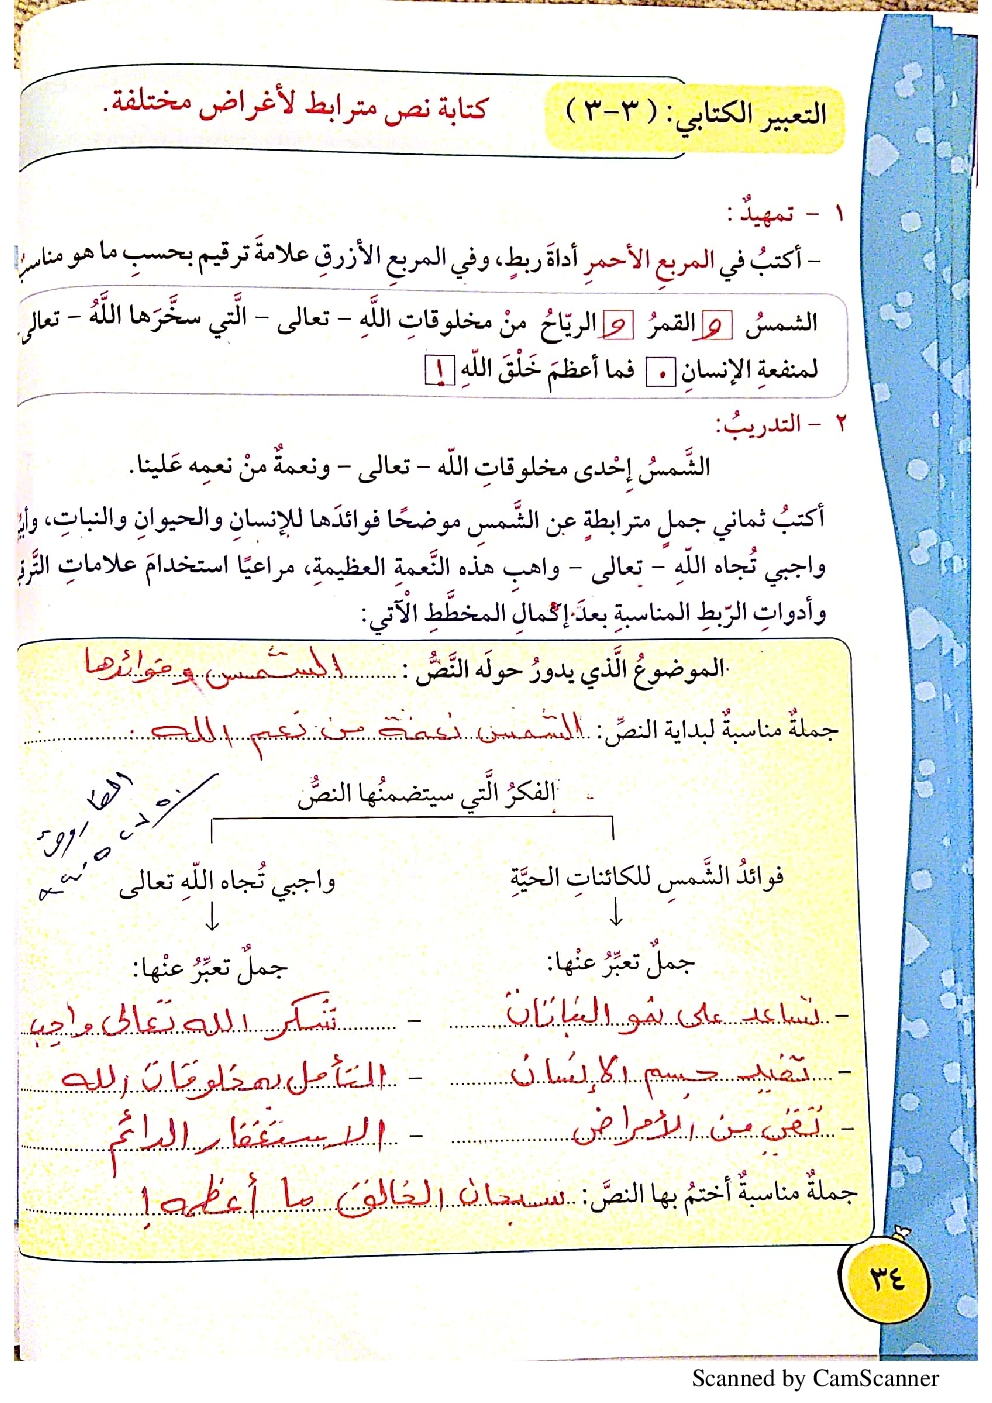 التعبير الكتابي: (٣-٣) كتابة نص مترابط لأغراض مختلفة.
١ - تمهيدٌ:
- أكتبُ في المربعِ الأحمرِ أداةَ ربطٍ، وفي المربعِ الأزرقِ علامةَ ترقيم بحسبِ ما هو
الشمسُ و القمرُ و الريّاحُ منْ مخلوقاتِ اللَّهِ - تعالى - الَّتي سخَّرَها اللَّهُ - تعالى
لمنفعةِ الإنسانِ . فما أعظمَ خَلْقَ اللّهِ !
٢ - التدريبُ:
الشَّمسُ إحْدى مخلوقاتِ اللّه - تعالى - ونعمةٌ منْ نعمِه عَلينا.
أكتبُ ثماني جملٍ مترابطةٍ عنِ الشَّمسِ موضحًا فوائدَها للإنسانِ والحيوانِ والنباتِ،
واجبي تُجاه اللّهِ - تعالى - واهبِ هذه النَّعمةِ العظيمةِ، مراعيًا استخدامَ علاماتِ
وأدواتِ الرّبطِ المناسبةِ بعدَ إكْمالِ المخطَّطِ الْآتي:
الموضوعُ الَّذي يدورُ حولَه النَّصُّ: الشمس وفوائدها
جملةٌ مناسبةٌ لبداية النصِّ: الشمس نعمة من نعم الله .
الفكرُ الَّتي سيتضمنُها النصُّ
فوائدُ الشَّمسِ للكائناتِ الحيَّةِ
واجبي تُجاه اللّهِ تعالى
جملٌ تعبِّرُ عنْها:
جملٌ تعبِّرُ عنْها:
- تساعد على نمو النباتات
- تشكر الله تعالى واجب
- تفيد جسم الإنسان
- التأمل بمخلوقات الله
- تقي من الأمراض
- الاستغفار الدائم
جملةٌ مناسبةٌ أختمُ بها النصَّ: سبحان الخالق ما أعظمه !
٣٤
Scanned by CamScanner